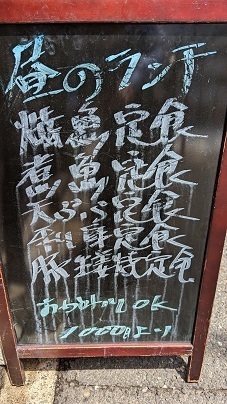 俺のランチ
焼魚定食
煮魚定食
天ぷら定食
刺身定食
豚生姜焼定食
おかわりOK
1000円より